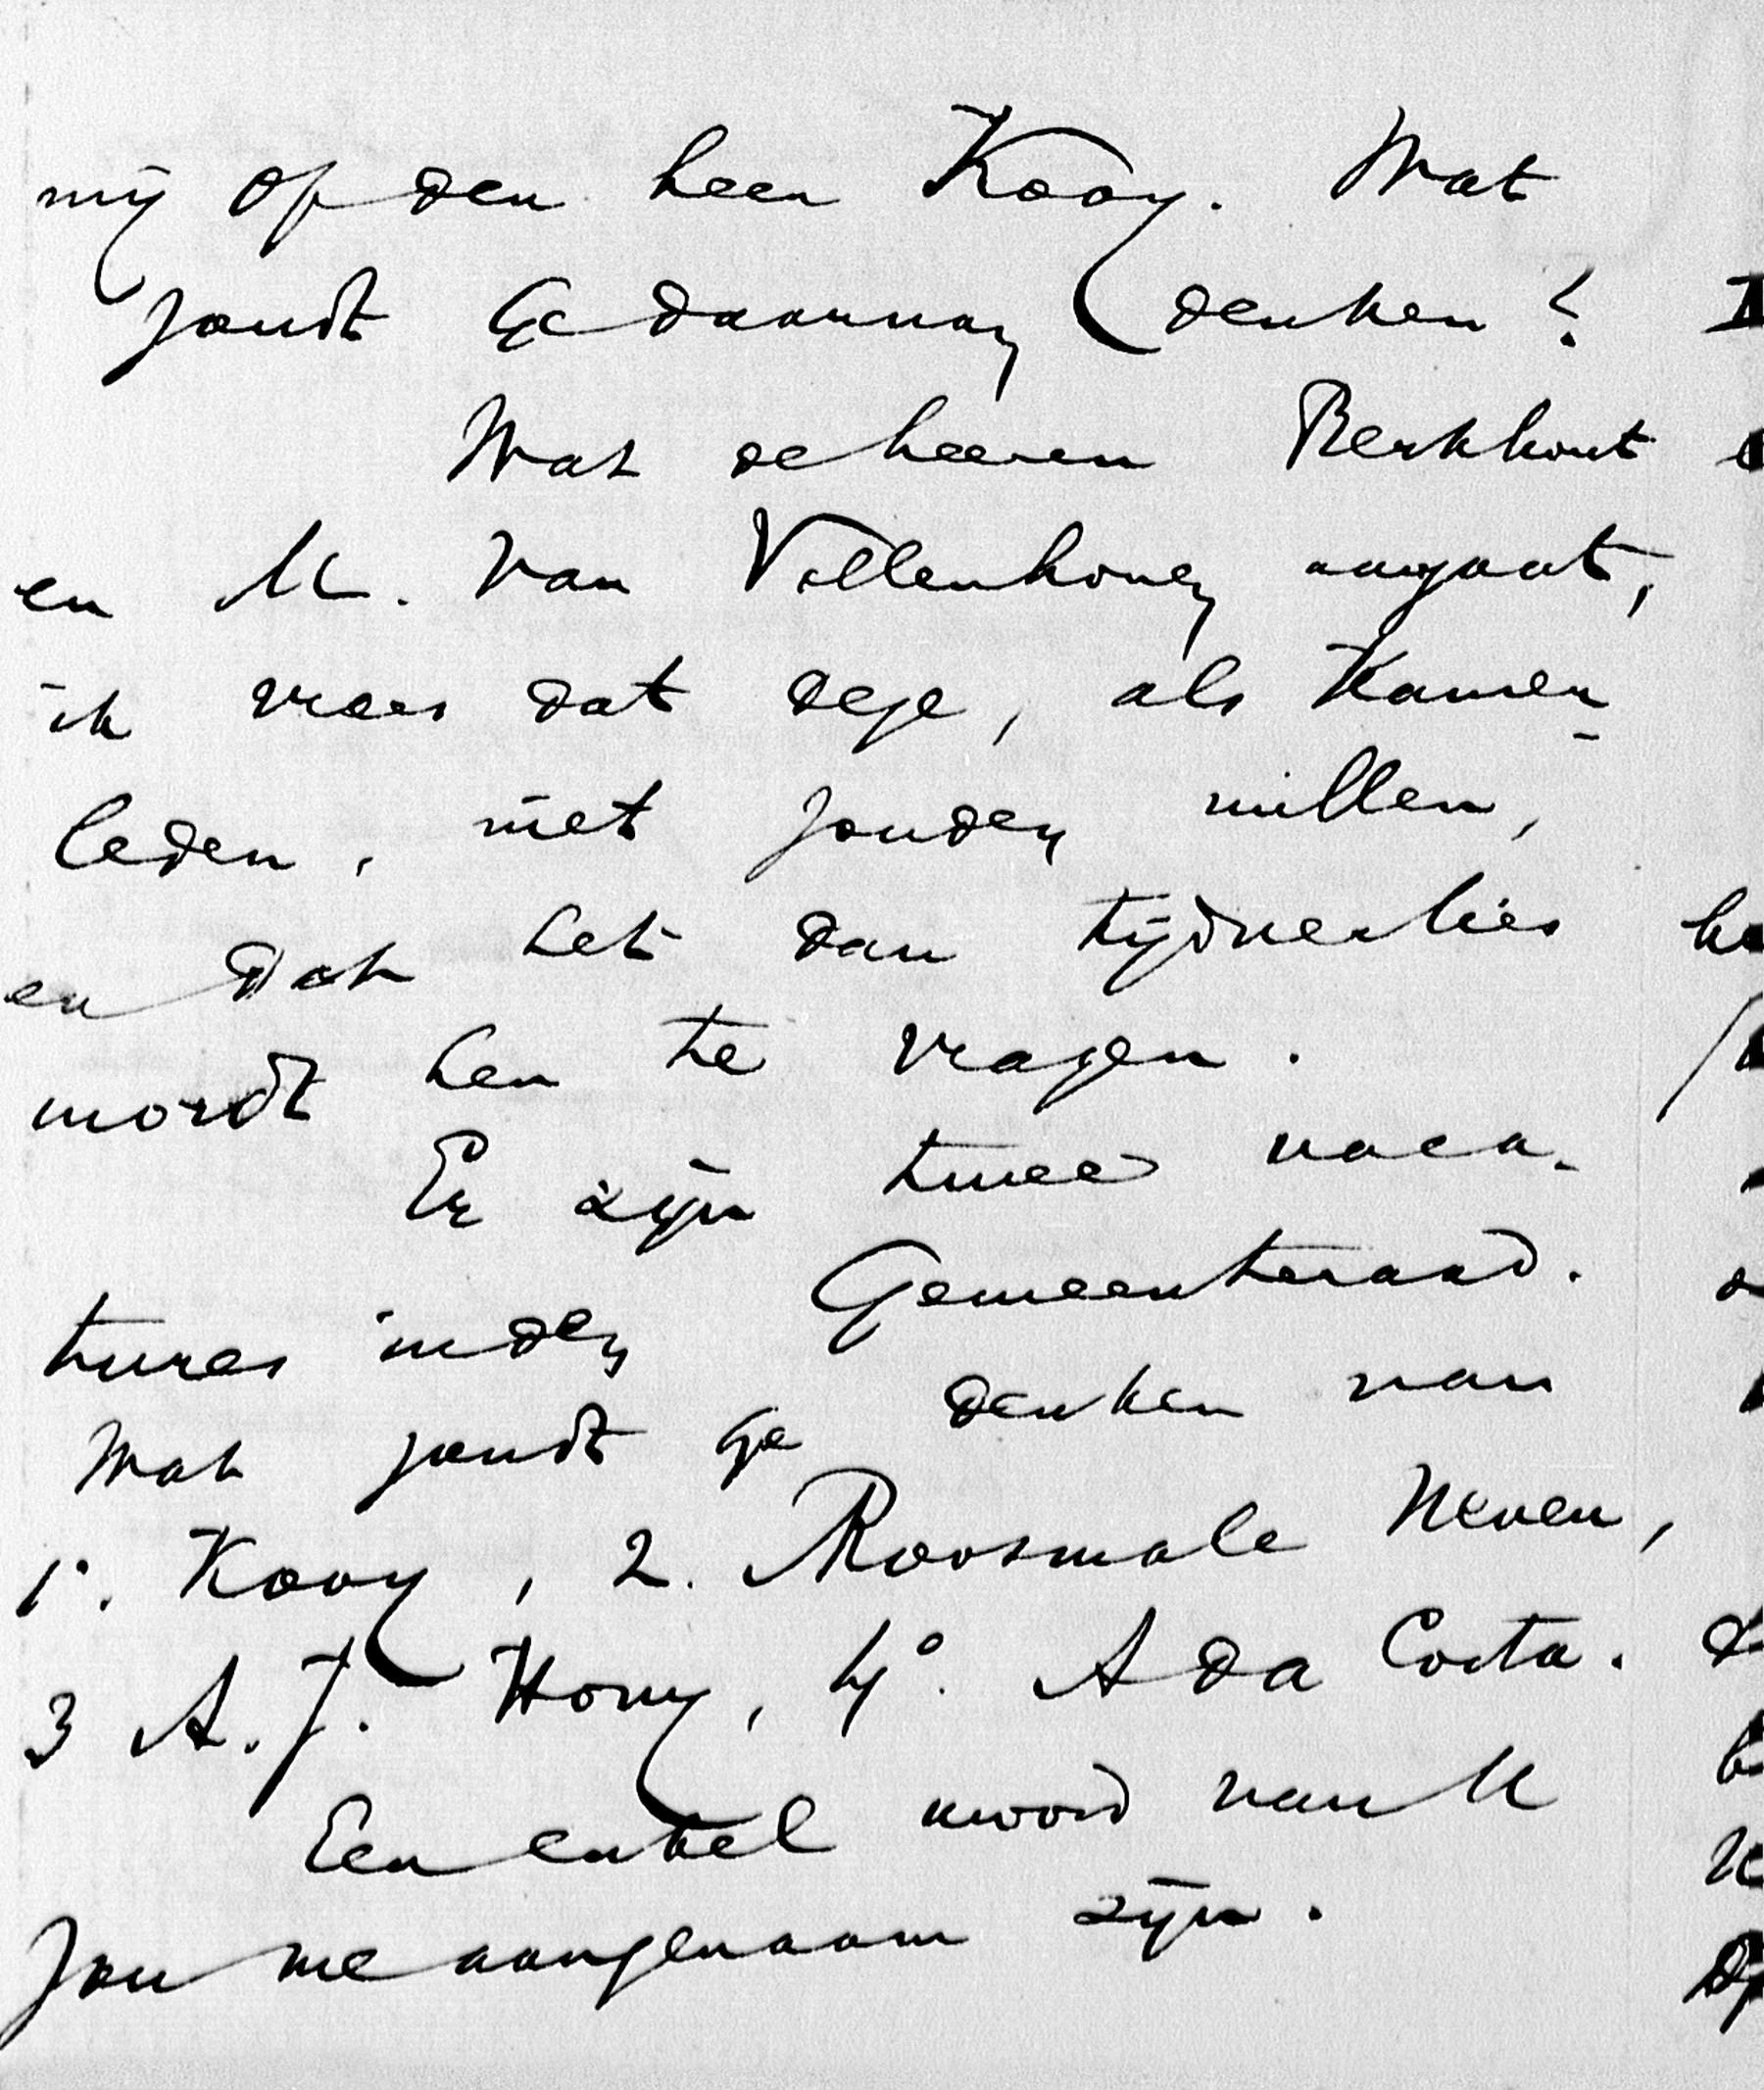 mij op den heer Kooy. Wat
zoudt Ge daarvan denken?
Wat de heeren Berkhout
en M. van Vollenhoven aangaat,
ik vrees dat deze, als Kamer-
leden, niet zouden willen,
en dat het dan tijdverlies
wordt hen te vragen.
Er zijn twee vaca-
tures in den Gemeenteraad.
Wat zoudt Ge denken van
1°. Kooy, 2. Roosmale Neven,
3 A. J. Hovy, 4°. A da Costa.
Een enkel woord van U
zou me aangenaam zijn.